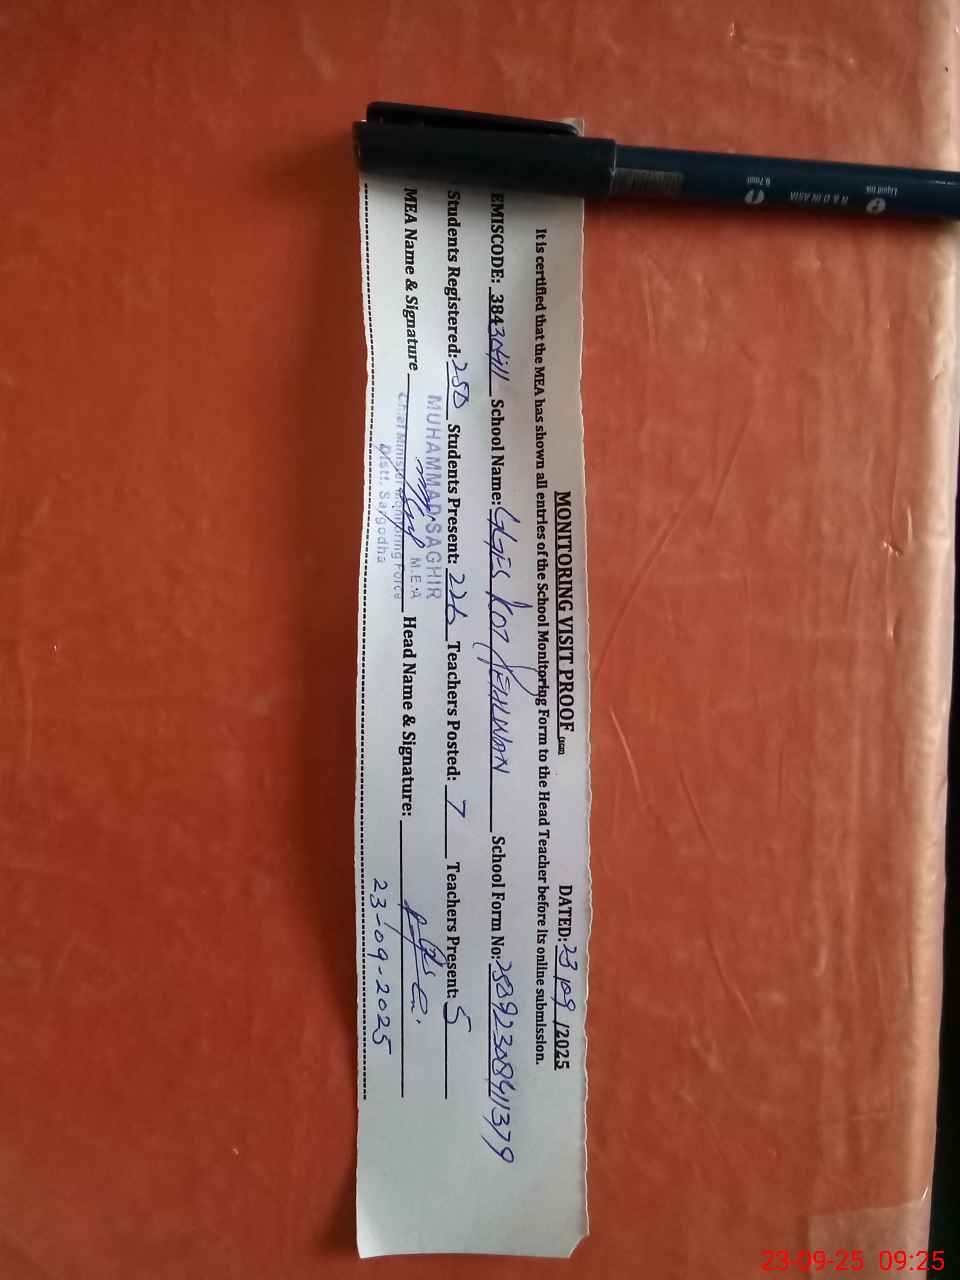 MONITORING VISIT PROOF (SGD) DATED: 23/09/2025
It is certified that the MEA has shown all entries of the School Monitoring Form to the Head Teacher before its online submission.
EMISCODE: 38430411 School Name: GGES KOT PEHLWAN School Form No:
Students Registered: 250 Students Present: 226 Teachers Posted: 7 Teachers Present: 5
MEA Name & Signature Head Name & Signature:
MUHAMMAD SAGHIR
M.E.A
Chief Minister Monitoring Force
Distt. Sargodha
23-09-2025
Liquid Ink
R & D IN ASIA
0.7mm
23-09-25 09:25